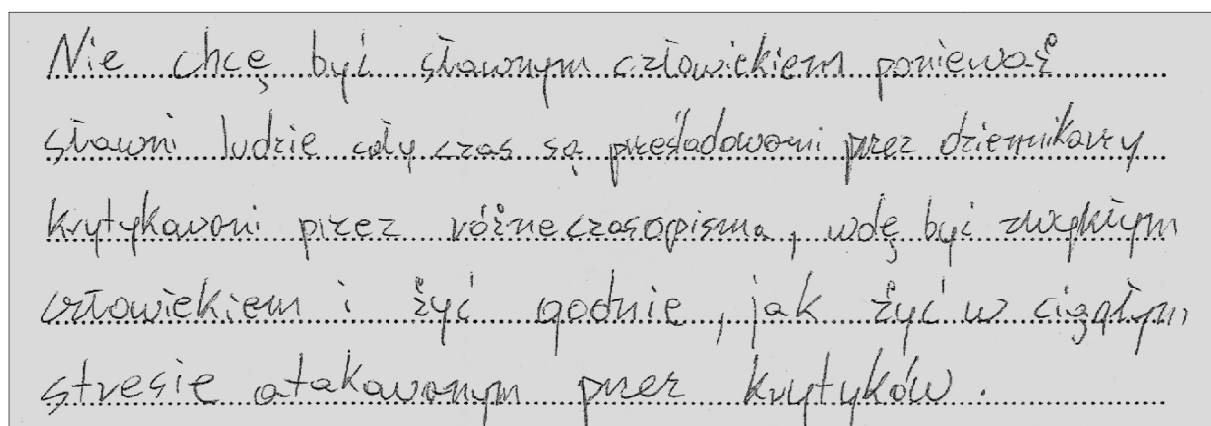 Nie chcę być sławnym człowiekiem ponieważ
sławni ludzie cały czas są prześladowani przez dziennikarzy
krytykowani przez różne czasopisma, wolę być zwykłym
człowiekiem i żyć godnie, jak żyć w ciągłym
stresie atakowanym przez krytyków.